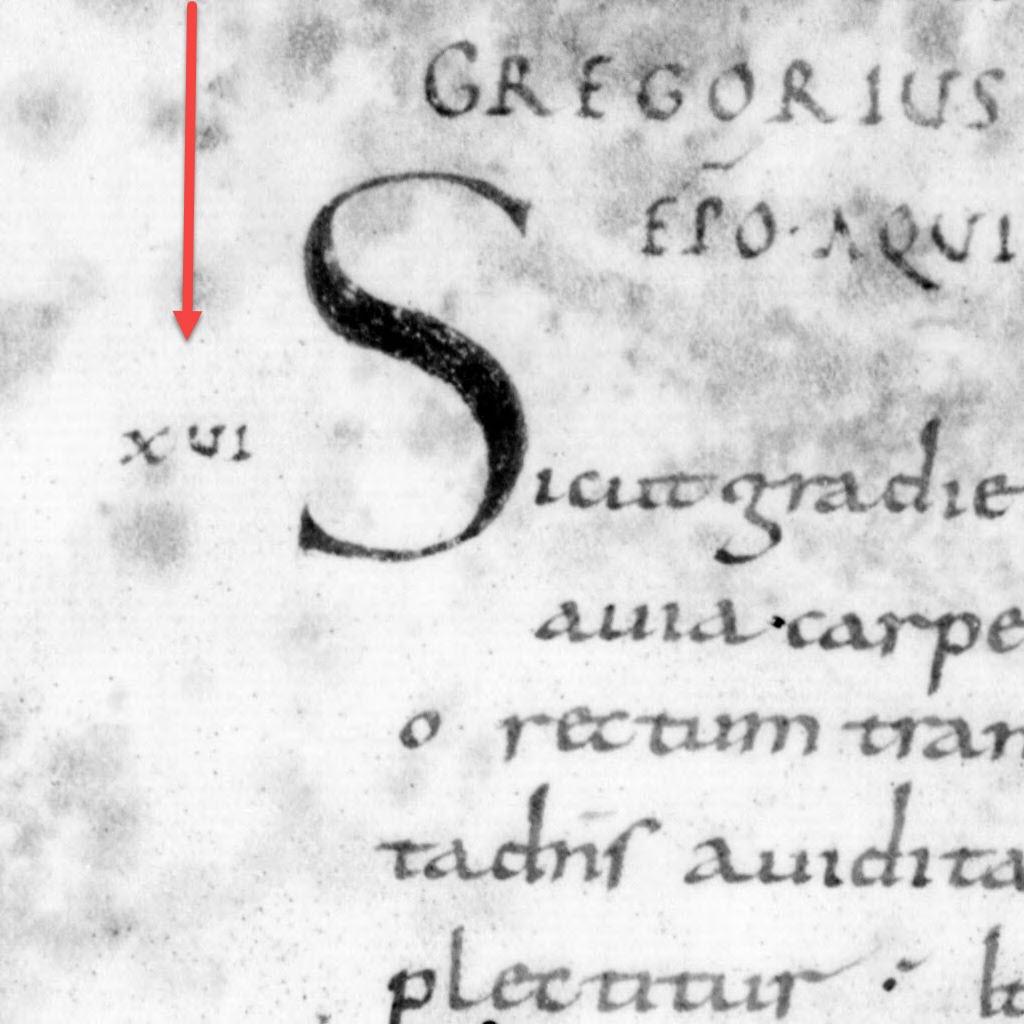 GREGORIUS
EP̄O · AQUI
XVI
Sicut gradie
auia · carpe
o rectum tran
tadn̄s auidita
plectitur :